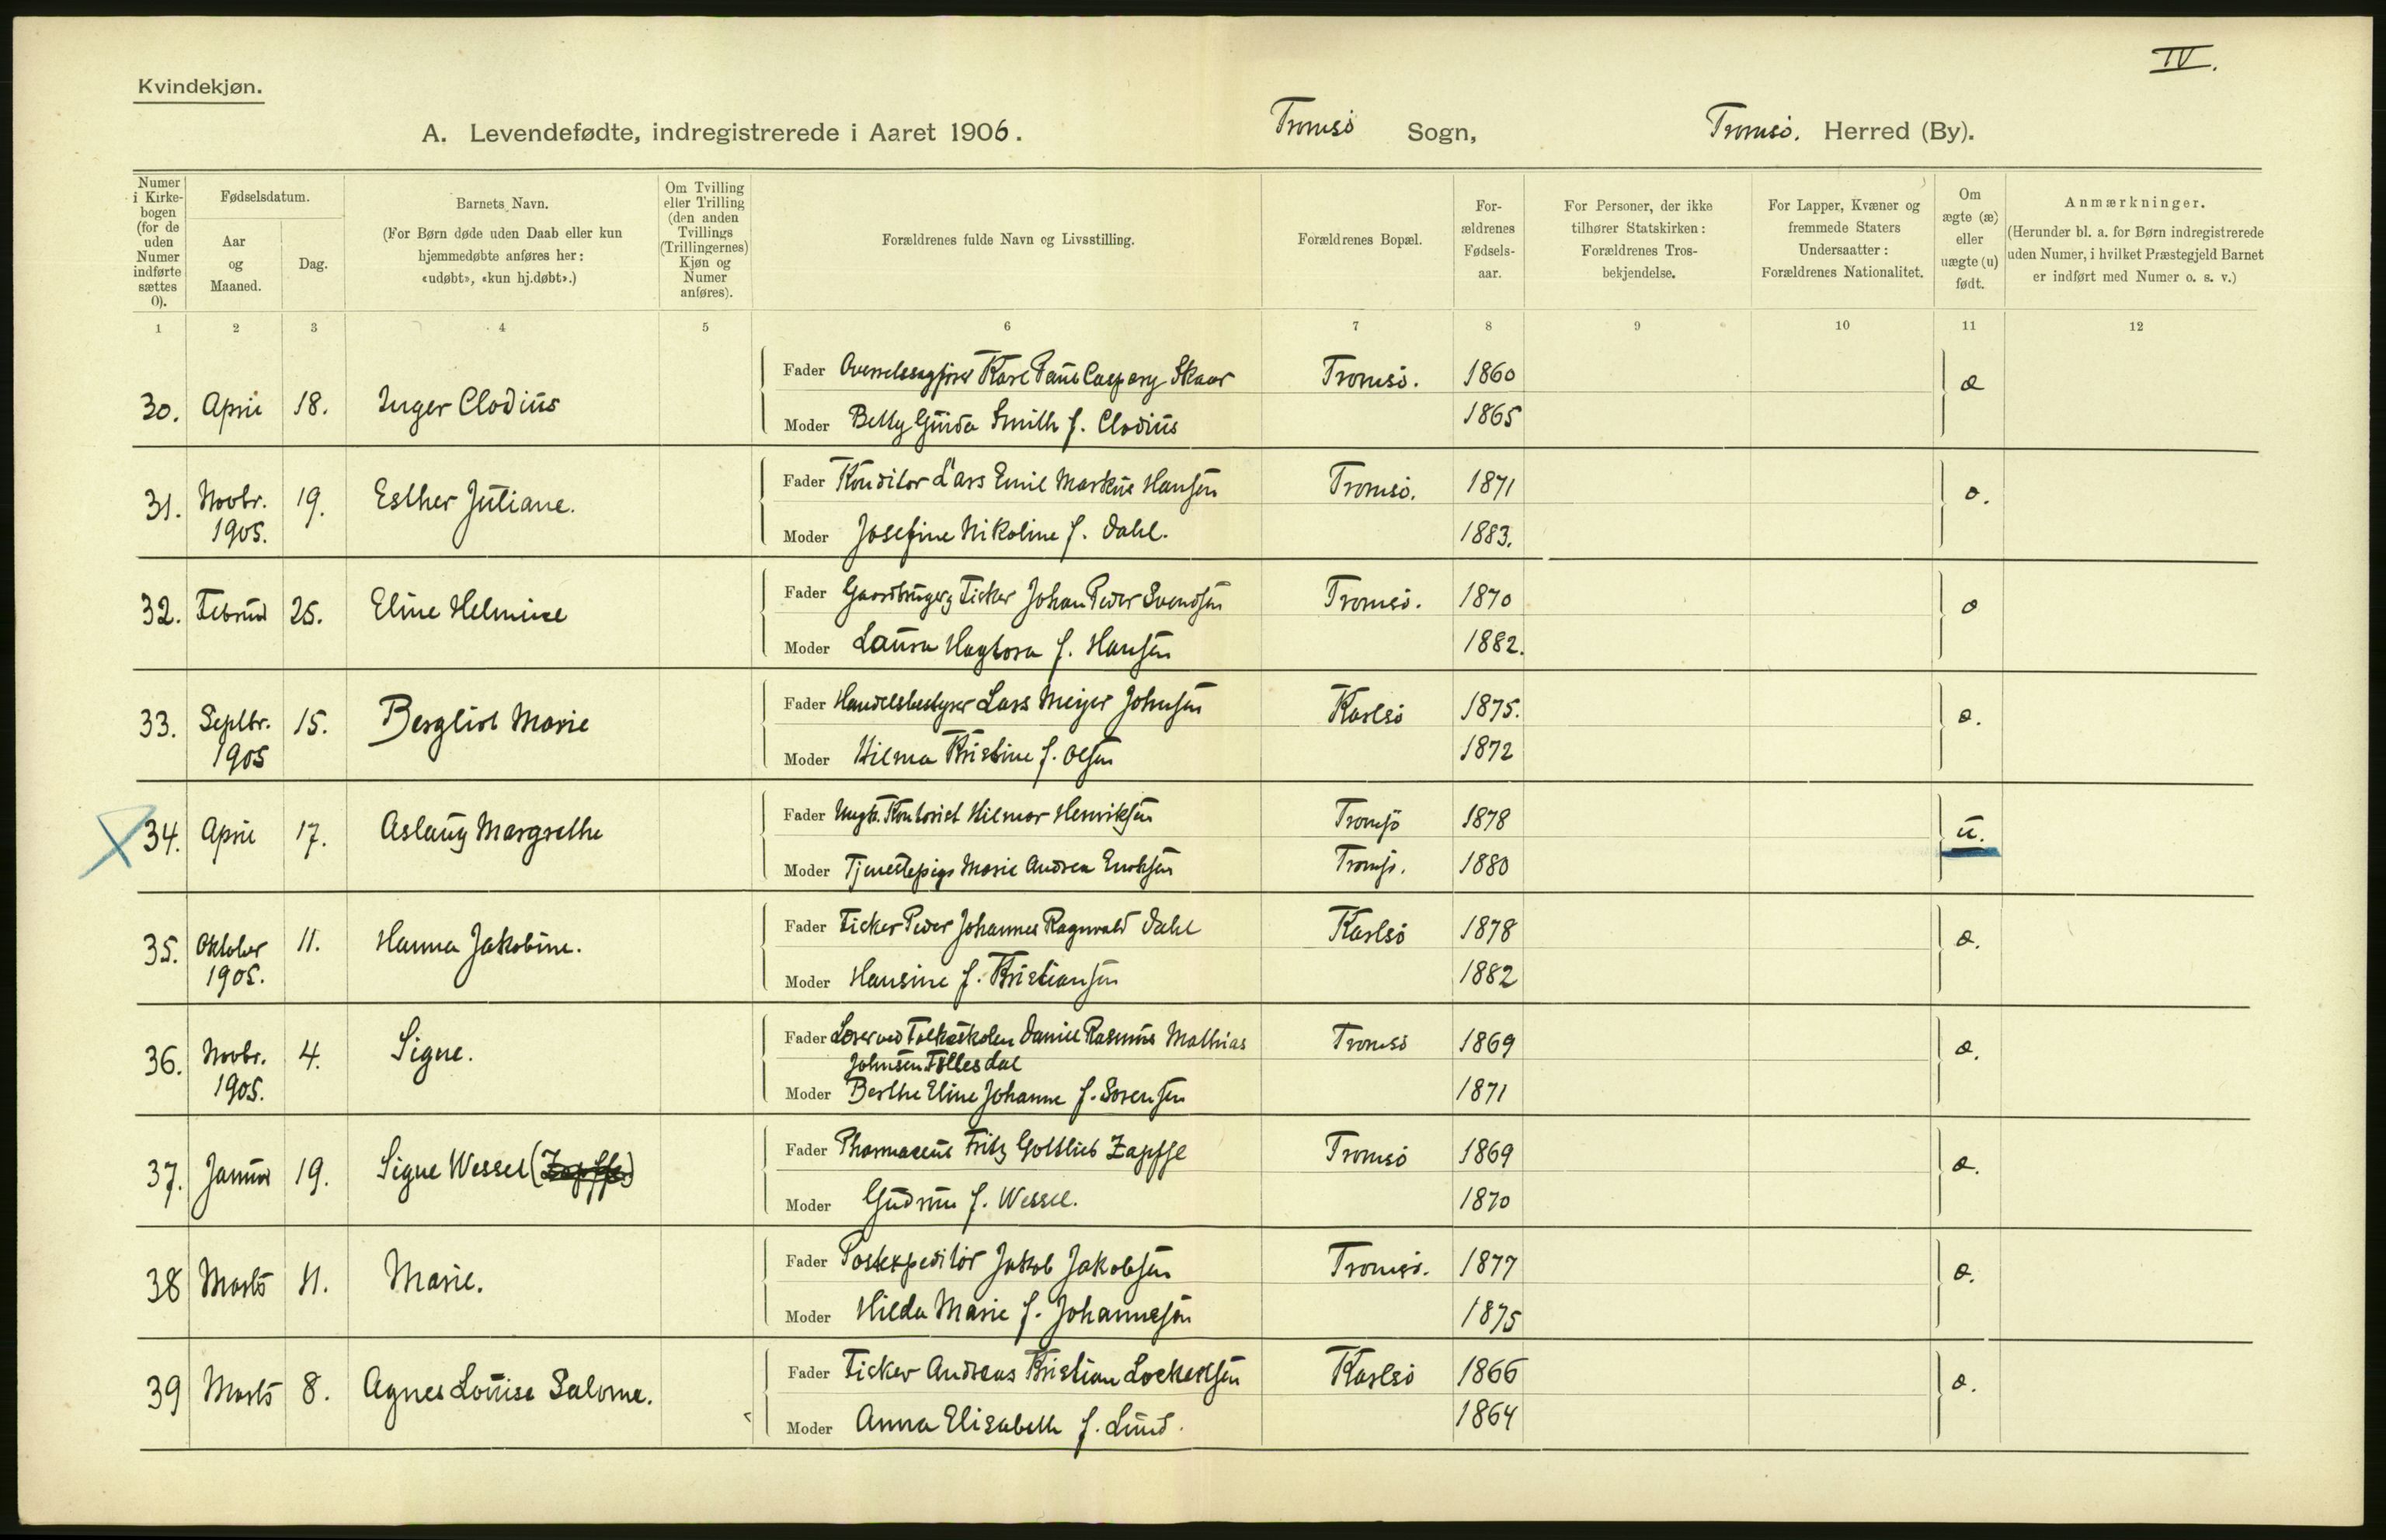 IV.
Kvindekjøn.
A. Levendefødte, indregistrerede i Aaret 1906. Tromsø Sogn, Tromsø. Herred (By).
Numer i Kirkebogen (for de uden Numer indførte sættes 0).
Fødselsdatum.
Aar og Maaned.
Dag.
Barnets Navn.
(For Børn døde uden Daab eller kun hjemmedøbte anføres her: «udøbt», «kun hj.døbt».)
Om Tvilling eller Trilling (den anden Tvillings (Trillingernes) Kjøn og Numer anføres).
Forældrenes fulde Navn og Livsstilling.
Forældrenes Bopæl.
Forældrenes Fødselsaar.
For Personer, der ikke tilhører Statskirken: Forældrenes Trosbekjendelse.
For Lapper, Kvæner og fremmede Staters Undersaatter: Forældrenes Nationalitet.
Om ægte (æ) eller uægte (u) født.
Anmærkninger.
(Herunder bl. a. for Børn indregistrerede uden Numer, i hvilket Præstegjeld Barnet er indført med Numer o. s. v.)
1 2 3 4 5 6 7 8 9 10 11 12
Fader Overretssagfører Karl Paul Caspary Skaar Tromsø. 1860 æ
30. April 18. Inger Clodiüs
Moder Betty Güida Smith f. Clodiüs 1865
Fader Konditor Lars Emil Markus Hansen Tromsø. 1871 æ.
31. Novbr. 1905. 19. Esther Jüliane.
Moder Josefine Nikoline f. Dahl. 1883.
Fader Gaardbruger, Fisker Johan Peder Svendsen Tromsø. 1870 æ
32. Februar 25. Eline Helmine
Moder Laüra Hagbora f. Hansen 1882.
Fader Handelsbestyrer Lars Meyer Johnsen Karlsø 1875. æ.
33. Septbr. 1905 15. Bergliot Marie
Moder Hilma Kristine f. Olsen 1872
Fader Ungk. Kontorist Hilmar Henriksen Tromsø 1878 ü.
34. April 17. Aslaüg Margrethe
Moder Tjenestepige Marie Andrea Enoksen Tromsø. 1880
Fader Fisker Peder Johannes Ragnvald Dahl Karlsø 1878 æ.
35. Oktober 1905. 11. Hanna Jakobine.
Moder Hansine f. Kristiansen 1882
Fader Lærer ved Folkeskolen Daniel Rasmüs Mathias Johnsen Føllesdal Tromsø 1869 æ.
36. Novbr. 1905. 4. Signe.
Moder Berthe Eline Johanne f. Sørensen 1871
Fader Pharmaceut Fritz Gottlieb Zapffe Tromsø 1869 æ.
37. Januar 19. Signe Wessel (Zapffe)
Moder Güdrün f. Wessel. 1870
Fader Postexpeditør Jakob Jakobsen Tromsø. 1877 æ.
38 Marts 11. Marie.
Moder Hilda Marie f. Johannesen 1875
Fader Fisker Andreas Kristian Lockertsen Karlsø 1866 æ.
39 Marts 8. Agnes Loüise Salome.
Moder Anna Elisabeth f. Lünd. 1864